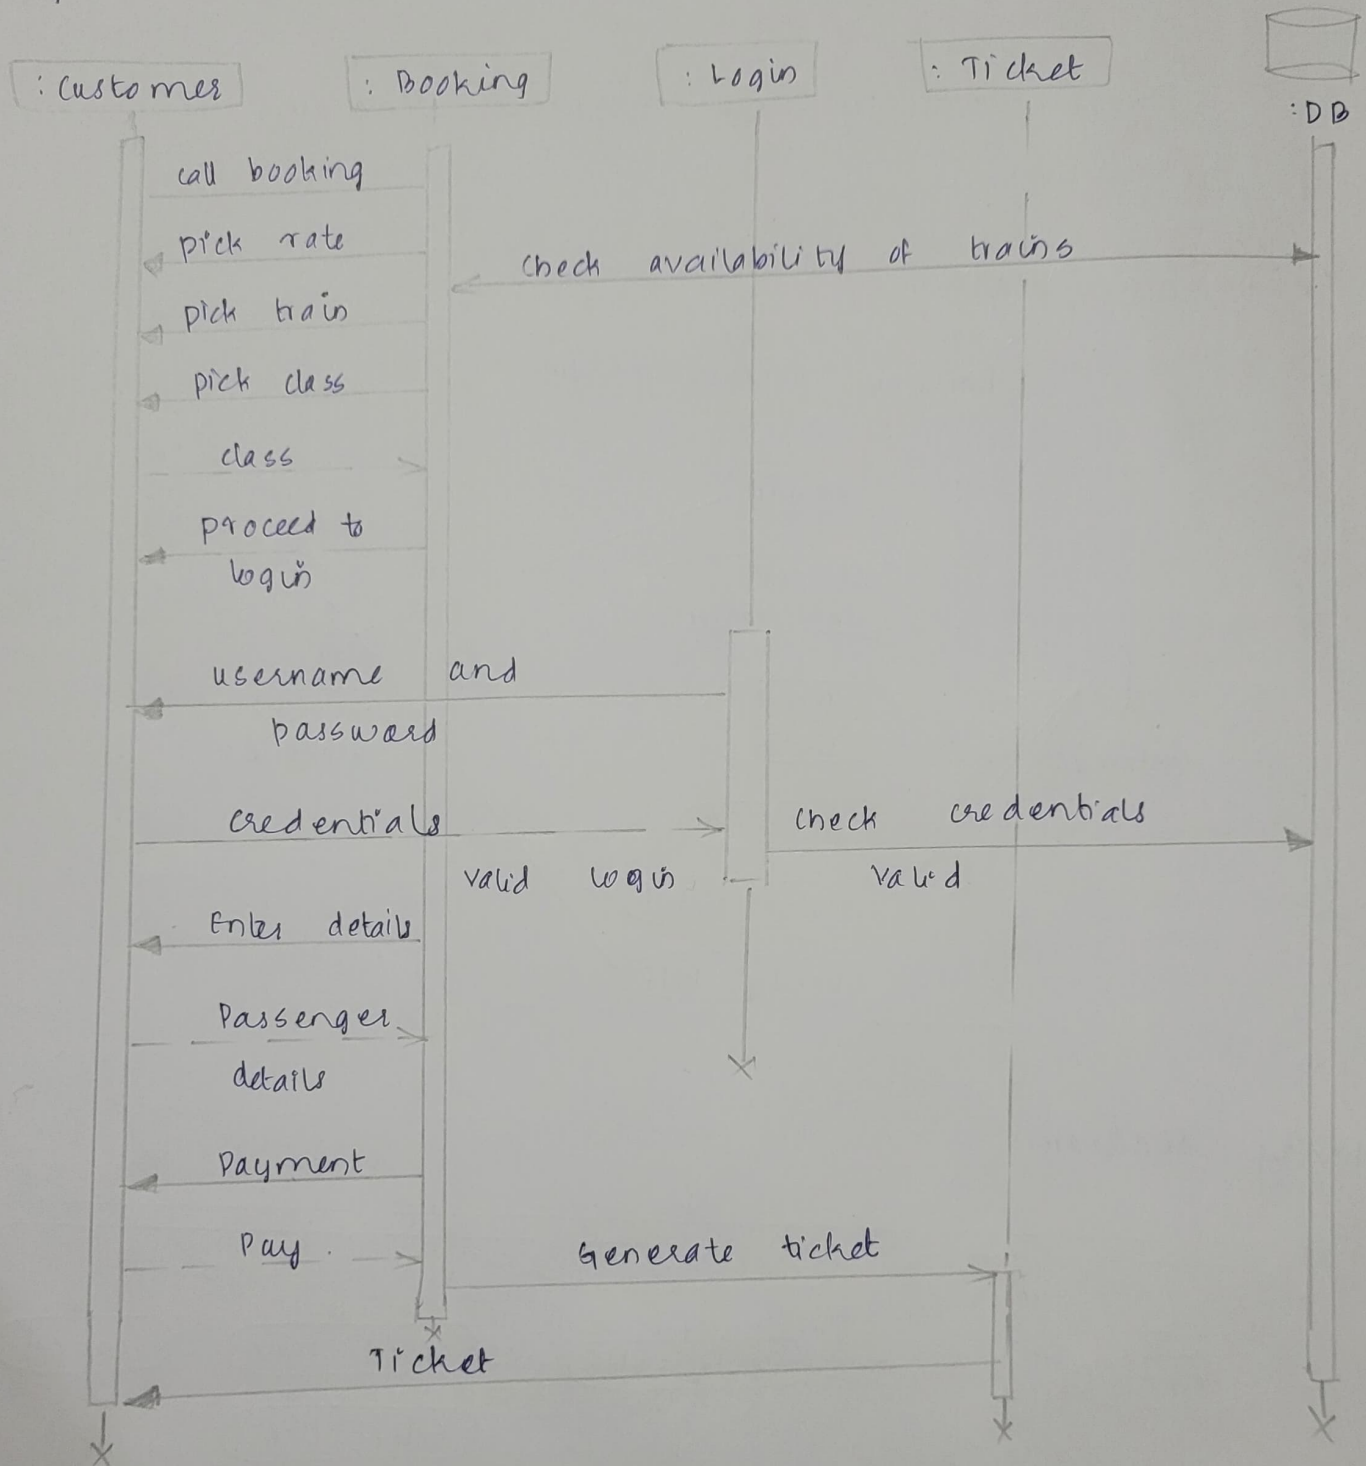 : Customer
: Booking
: Login
: Ticket
: DB
call booking
pick rate
check availability of trains
pick train
pick class
class
proceed to
login
username and
password
credentials
check credentials
valid login
valid
Enter details
Passenger
details
Payment
Pay
Generate ticket
Ticket